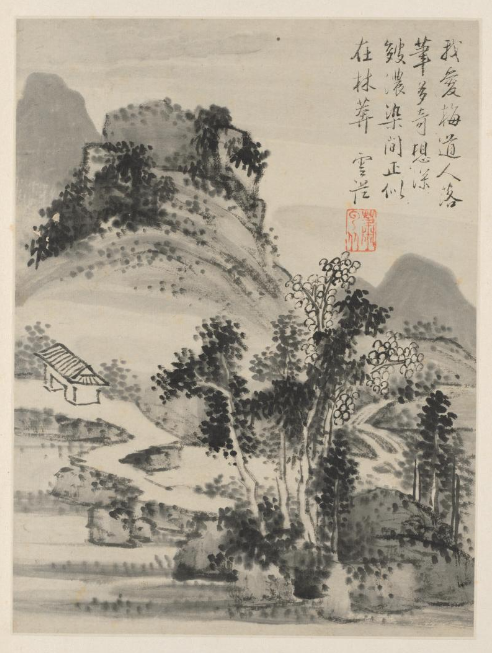 我愛梅道人落
筆多奇想深
皴濃染間正似
在林莽 雲